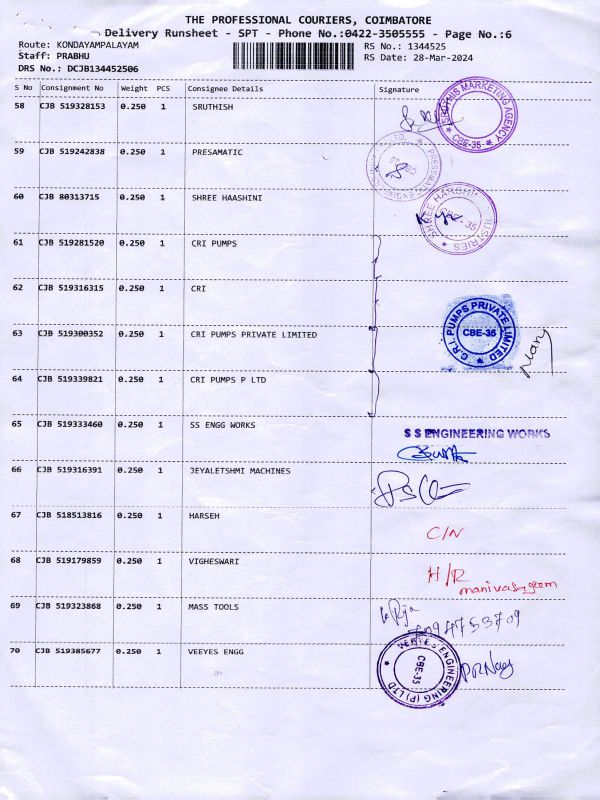 THE PROFESSIONAL COURIERS, COIMBATORE
Delivery Runsheet - SPT - Phone No.:0422-3505555 - Page No.:6
Route: KONDAYAMPALAYAM
RS No.: 1344525
Staff: PRABHU
RS Date: 28-Mar-2024
DRS No.: DCJB134452506
S No Consignment No Weight PCS Consignee Details Signature
58 CJB 519328153 0.250 1 SRUTHISH
SRUTHIS MARKETING AGENCY
* CBE-35 *
59 CJB 519242838 0.250 1 PRESAMATIC
60 CJB 80313715 0.250 1 SHREE HAASHINI
CBE-35
61 CJB 519281520 0.250 1 CRI PUMPS
62 CJB 519316315 0.250 1 CRI
63 CJB 519300352 0.250 1 CRI PUMPS PRIVATE LIMITED
C.R.I. PUMPS PRIVATE LIMITED
CBE-35
64 CJB 519339821 0.250 1 CRI PUMPS P LTD
65 CJB 519333460 0.250 1 SS ENGG WORKS
S S ENGINEERING WORKS
66 CJB 519316391 0.250 1 JEYALETSHMI MACHINES
67 CJB 518513816 0.250 1 HARSEH
C/N
68 CJB 519179859 0.250 1 VIGHESWARI
H/R
69 CJB 519323868 0.250 1 MASS TOOLS
70 CJB 519385677 0.250 1 VEEYES ENGG
VEEYES ENGINEERING (P) LTD
CBE-35